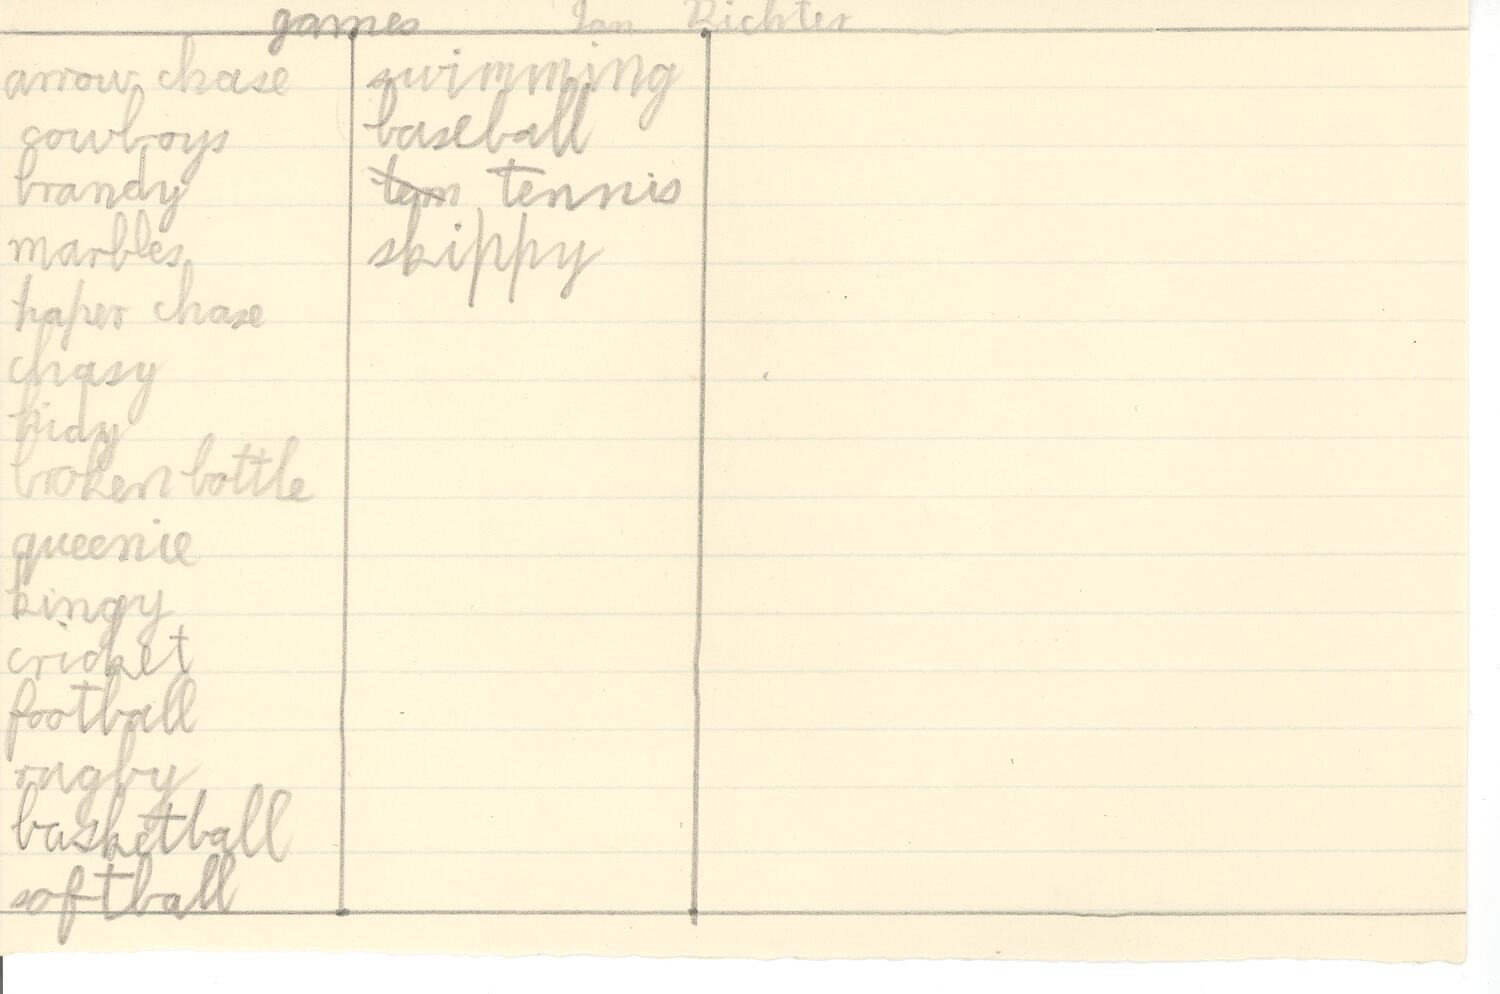 games Ian Richter
arrow chase
cowboys
brandy
marbles
paper chase
chasy
kidy
broken bottle
queenie
kingy
cricket
football
rugby
basketball
softball
swimming
baseball
tem tennis
skippy